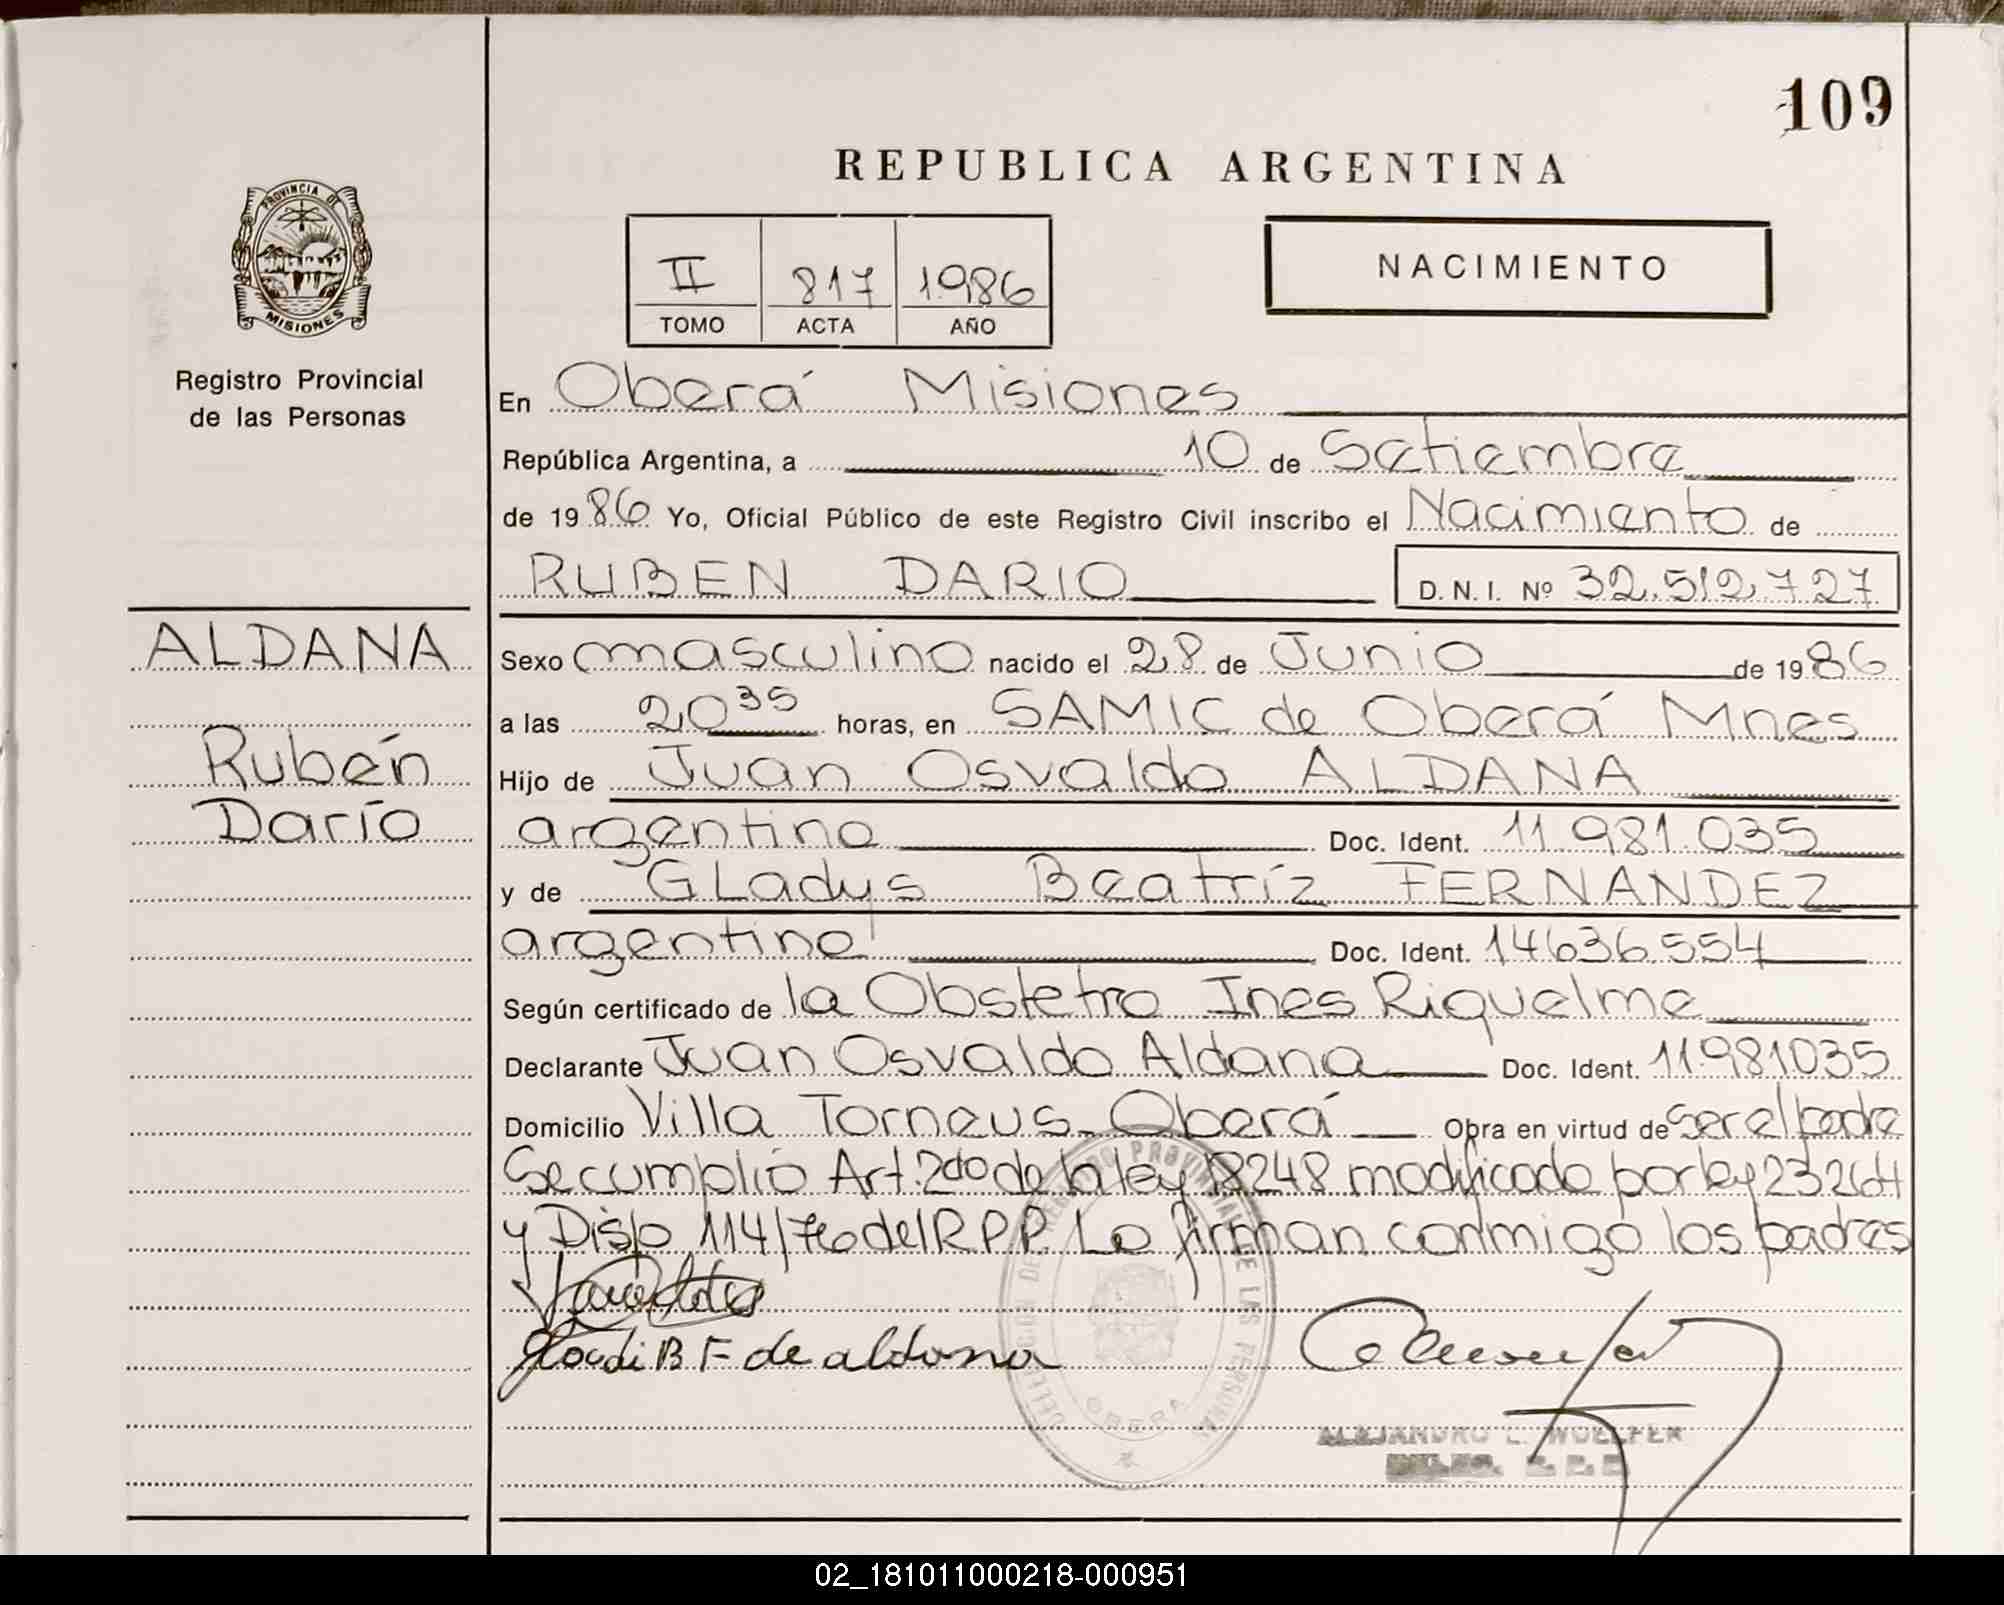 109
REPUBLICA ARGENTINA
PROVINCIA DE
MISIONES
II 817 1986
TOMO ACTA AÑO
NACIMIENTO
Registro Provincial
de las Personas
En Oberá Misiones
República Argentina, a 10 de Setiembre
de 1986 Yo, Oficial Público de este Registro Civil inscribo el Nacimiento de
RUBEN DARIO D.N.I. Nº 32.512.727
ALDANA
Rubén
Darío
Sexo masculino nacido el 28 de Junio de 1986
a las 20 35 horas, en SAMIC de Oberá Mnes
Hijo de Juan Osvaldo ALDANA
argentino Doc. Ident. 11.981.035
y de GLadys Beatríz FERNANDEZ
argentina Doc. Ident. 14636.554
Según certificado de la Obstetra Ines Riquelme
Declarante Juan Osvaldo Aldana Doc. Ident. 11981035
Domicilio Villa Torneus - Oberá Obra en virtud de ser el padre
Se cumplió Art. 2do de la ley 18248 modificado por ley 23264
y Disp 114/76 del R.P.P. Lo firman conmigo los padres
B F de aldana
DELEGACION DE REGISTRO PROVINCIAL DE LAS PERSONAS
OBERA
ALEJANDRO L. WOELFER
02_181011000218-000951